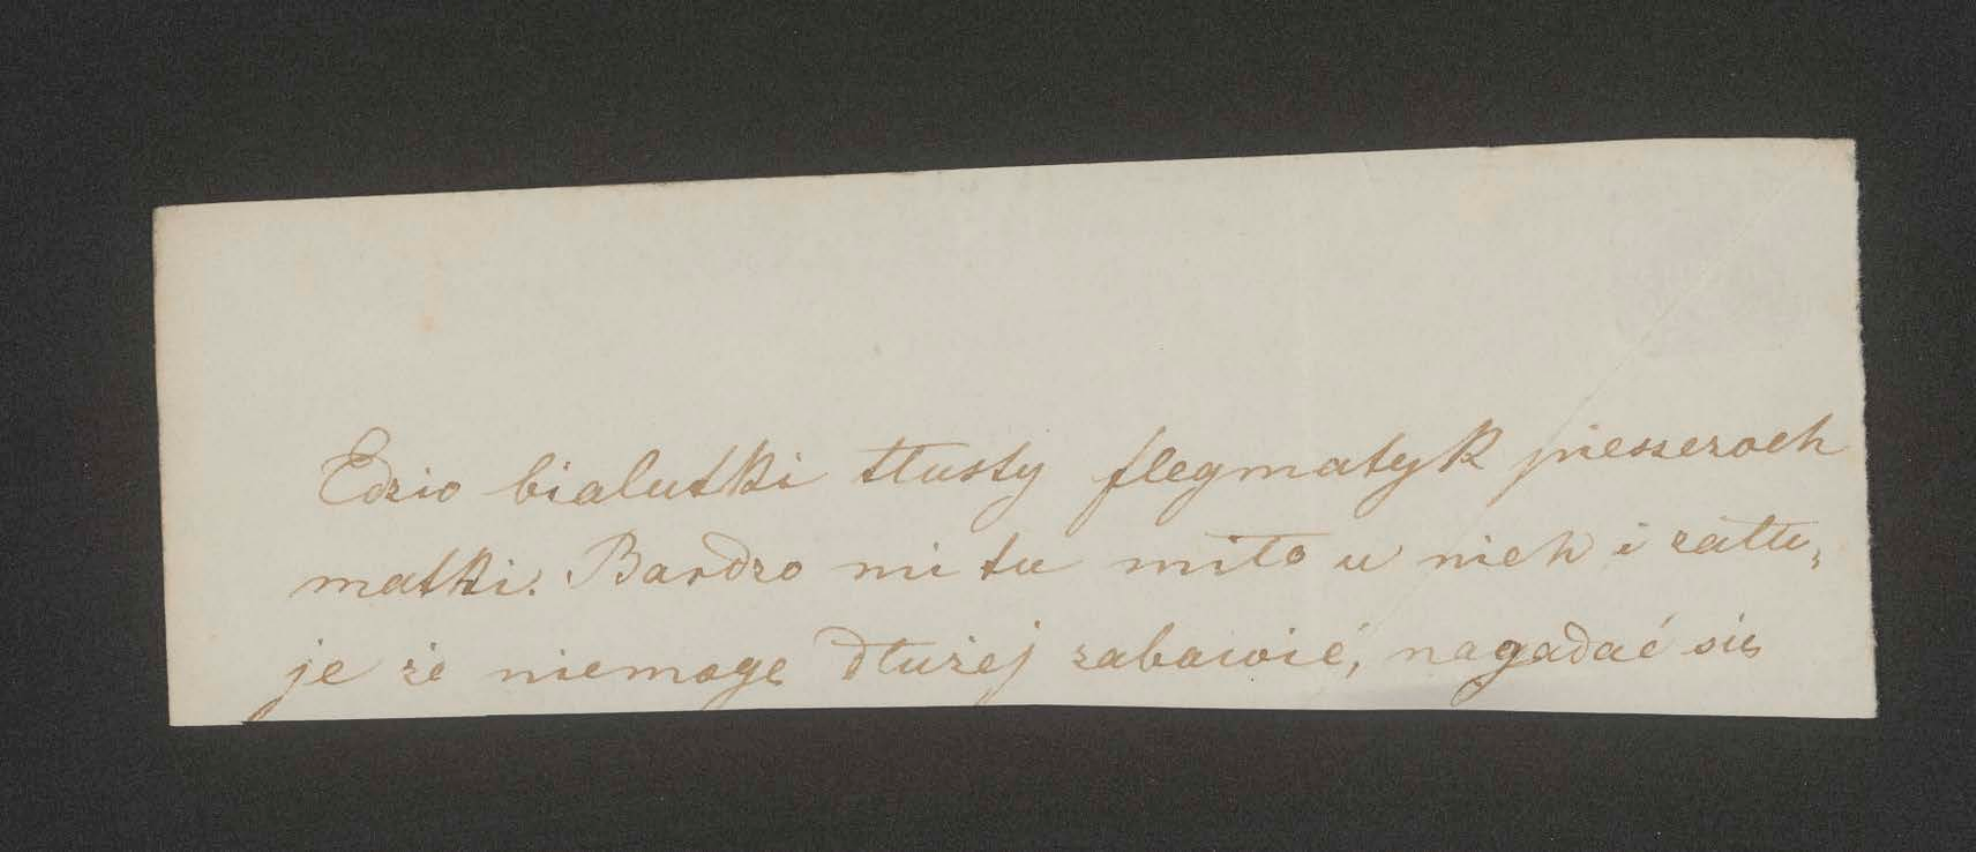 Edzio bialutki tłusty flegmatyk pieszczoch
matki. Bardzo mi tu miło u nich i żału,
je że niemogę dłużej zabawić, nagadać się